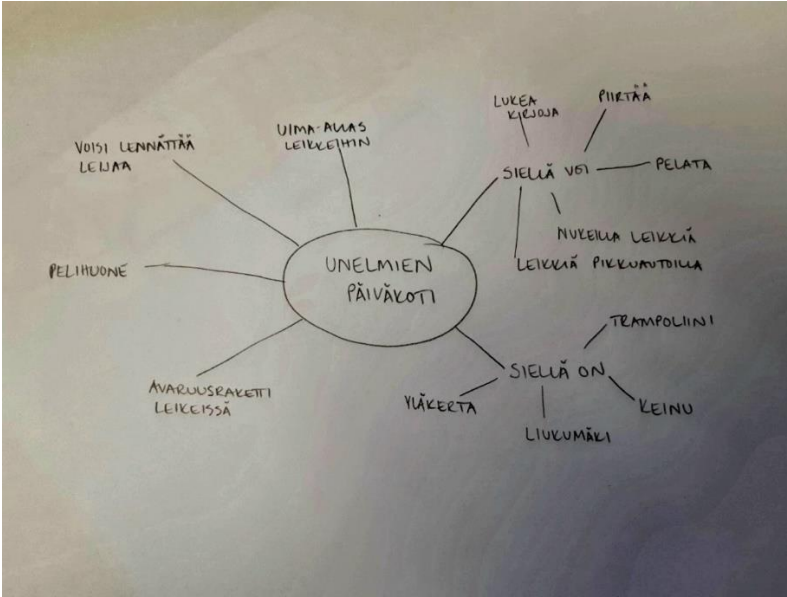 UNELMIEN
PÄIVÄKOTI
UIMA-ALLAS
LEIKKEIHIN
VOISI LENNÄTTÄÄ
LEIJAA
PELIHUONE
AVARUUSRAKETTI
LEIKEISSÄ
SIELLÄ VOI
LUKEA
KIRJOJA
PIIRTÄÄ
PELATA
NUKEILLA LEIKKIÄ
LEIKKIÄ PIKKUAUTOILLA
SIELLÄ ON
TRAMPOLIINI
KEINU
LIUKUMÄKI
YLÄKERTA